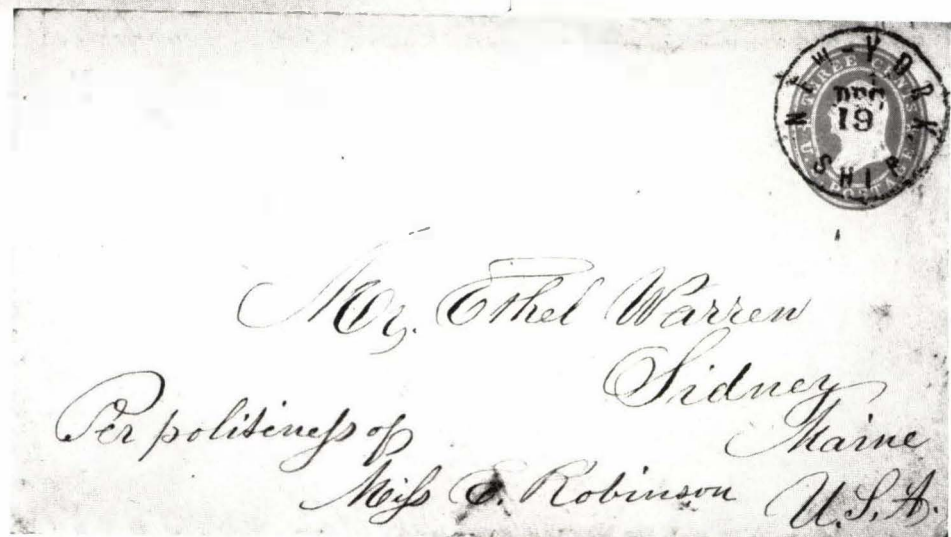 NEW-YORK
DEC
19
SHIP
U.S. THREE CENTS
POSTAGE
Mr. Ethel Warren
Sidney
Maine
U.S.A.
Per politiness of
Miss E. Robinson